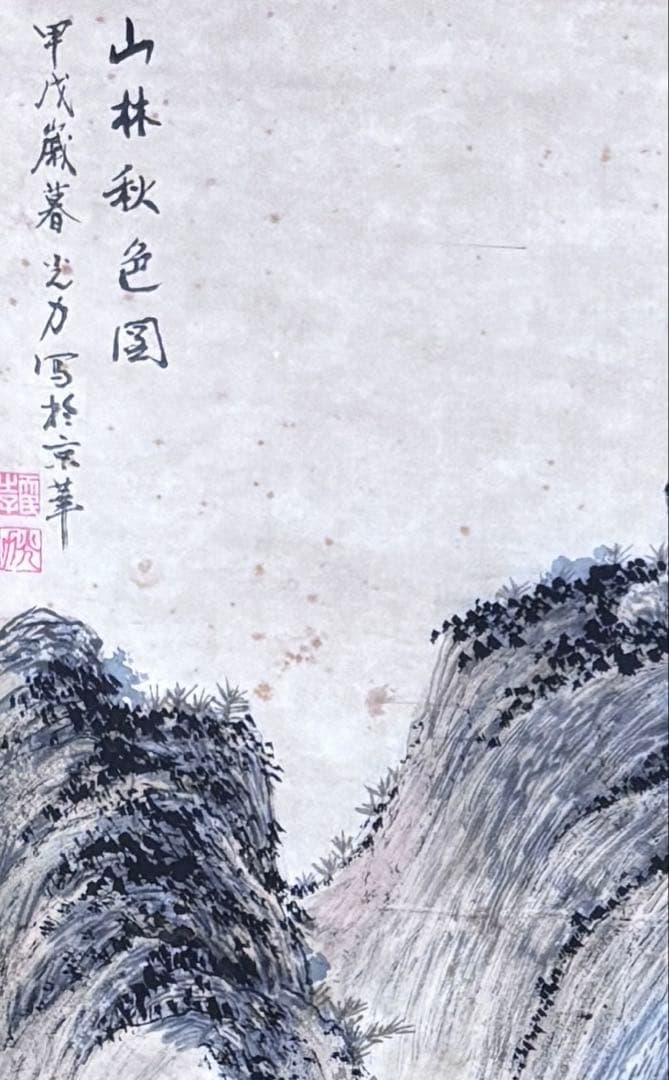 山林秋色圖
甲戌歲暮光力写於京華